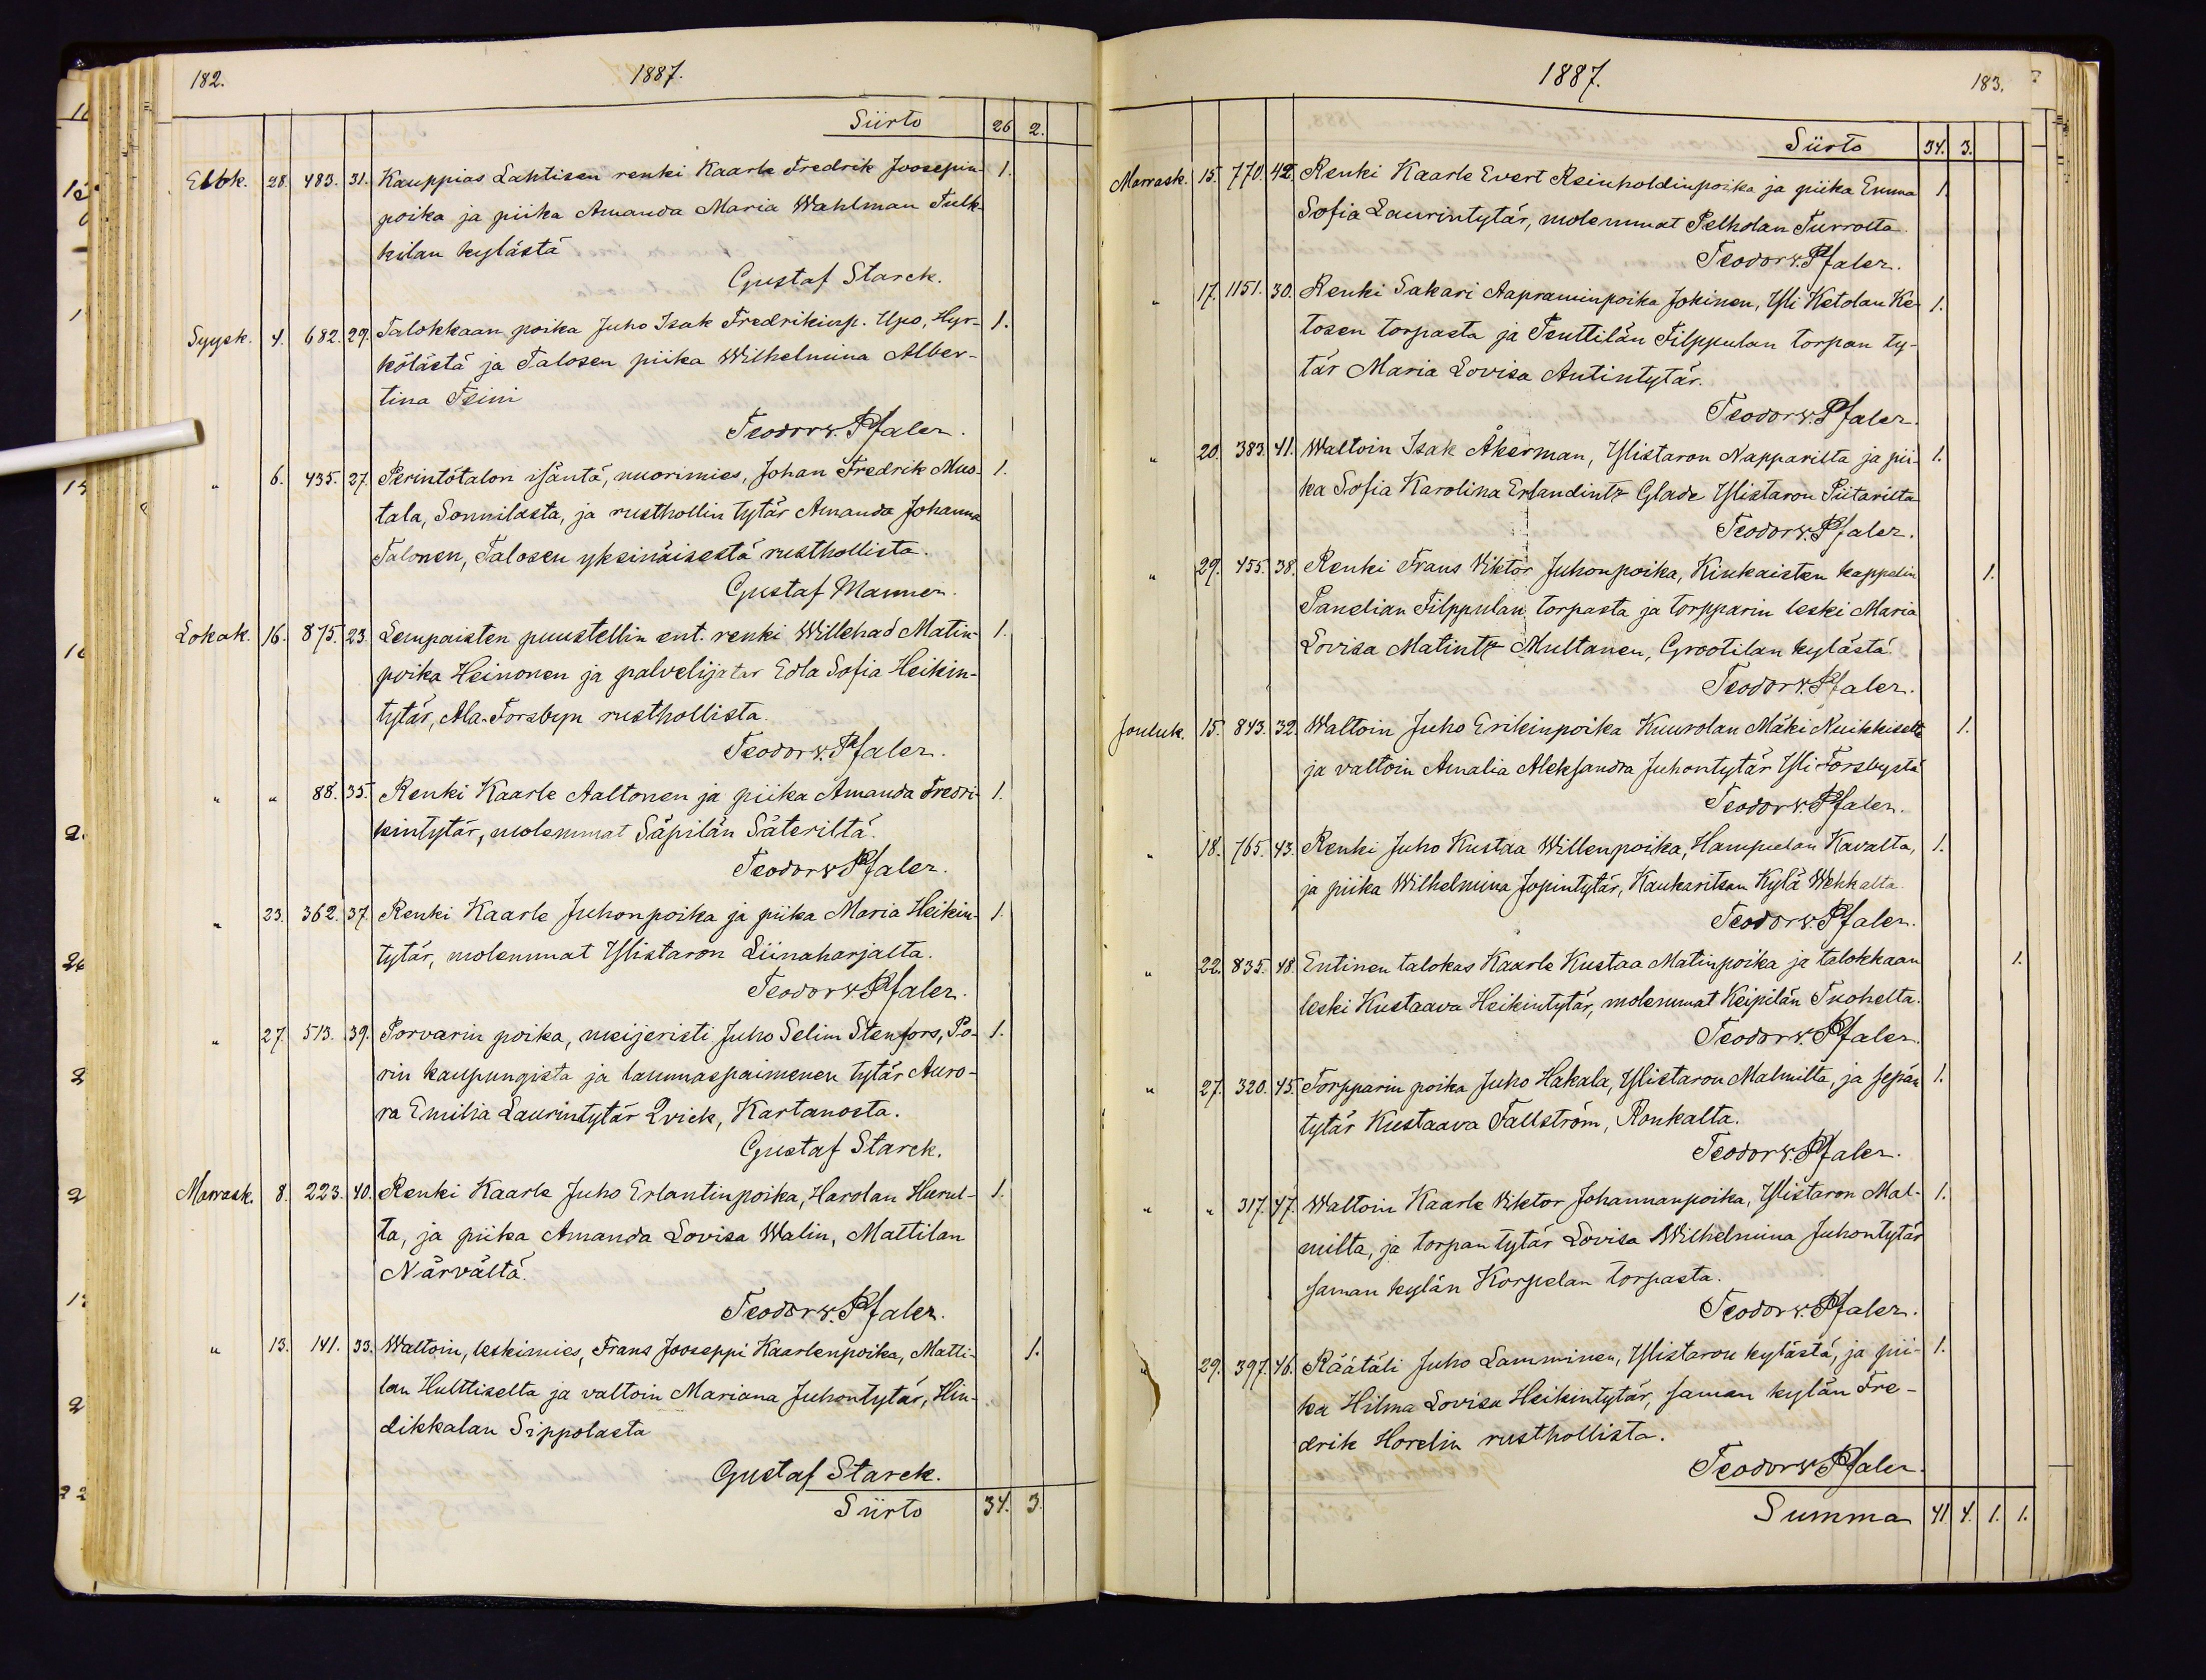 182.
1887.
Siirto 26 2.
Elok. 28. 483. 31. Kauppias Lahtisen renki Kaarle Fredrik Joosepin- 1.
poika ja piika Amanda Maria Wahlman Tulk-
kilan kylästä
Gustaf Starck.
Syysk. 4. 682. 29. Talokkaan poika Juho Isak Fredrikinp. Upo, Hyr- 1.
kölästä ja Talosen piika Wilhelmina Alber-
tina Feini
Teodor v. Pfaler.
" 6. 435. 27. Perintötalon isäntä, nuorimies, Johan Fredrik Mus- 1.
tala, Sonnilasta, ja rusthollin tytär Amanda Johanna
Talonen, Talosen yksinäisestä rusthollista.
Gustaf Manner.
Lokak. 16. 875. 23 Lempaisten puustellin ent. renki Willehad Matin- 1.
poika Heinonen ja palvelijatar Edla Sofia Heikin-
tytär, Ala-Forsbyn rusthollista
Teodor v. Pfaler.
" " 88. 35. Renki Kaarle Aaltonen ja piika Amanda Fredri- 1.
kintytär, molemmat Säpilän Säteriltä.
Teodor v Pfaler.
" 23. 362. 37. Renki Kaarle Juhonpoika ja piika Maria Heikin- 1.
tytär, molemmat Ylistaron Liinaharjalta.
Teodor v Pfaler.
" 27. 513. 39. Porvarin poika, meijeristi Juho Selim Stenfors, Po- 1.
rin kaupungista ja laumaspaimenen tytär Auro-
ra Emilia Laurintytär Qvick, Kartanosta.
Gustaf Starck.
Marrask. 8. 223. 40. Renki Kaarle Juho Erlantinpoika, Harolan Hurul- 1.
ta, ja piika Amanda Lovisa Walin, Mattilan
Närvältä.
Teodor v. Pfaler.
" 13. 141. 33. Waltoin, leskimies, Frans Jooseppi Kaarlenpoika, Matti- 1.
lan Hulttiselta ja valtoin Mariana Juhontytär, Hin-
dikkalan Sippolasta
Gustaf Starck.
Siirto 34. 3.
1887.
183.
Siirto 34. 3.
Marrask. 15. 770. 42. Renki Kaarle Evert Reinholdinpoika ja piika Emma 1.
Sofia Laurintytär, molemmat Pelholan Turrolta.
Teodor v. Pfaler.
" 17. 1151. 30. Renki Sakari Aapraminpoika Jokinen, Yli Ketolan Ke- 1.
tosen torpasta ja Penttilän Filppulan torpan ty-
tär Maria Lovisa Antintytär.
Teodor v. Pfaler.
" 20. 383. 41. Waltoin Isak Åkerman, Ylistaron Napparilta ja pii- 1.
ka Sofia Karolina Erlandintr Glade Ylistaron Piitarilta
Teodor v. Pfaler.
" 29. 455. 38. Renki Frans Viktor Juhonpoika, Kiukaisten kappelin 1.
Panelian Filppulan torpasta ja torpparin leski Maria
Lovisa Matintr Multanen, Grootilan kylästä.
Teodor v. Pfaler.
Jouluk. 15. 843. 32. Waltoin Juho Erikinpoika Kuurolan Mäki Nuikkiselta 1.
ja valtoin Amalia Aleksandra Juhontytär Yli Forsbystä
Teodor v. Pfaler.
" 18. 765. 43. Renki Juho Kustaa Willenpoika, Hampulan Kavalta, 1.
ja piika Wilhelmina Jopintytär, Kaukaritsan Kylä Wehkalta.
Teodor v. Pfaler.
" 22. 835. 48. Entinen talokas Kaarle Kustaa Matinpoika ja talokkaan 1.
leski Kustaava Heikintytär, molemmat Keipilän Tuohelta.
Teodor v. Pfaler.
" 27. 320. 45. Torpparin poika Juho Hakala, Ylistaron Malmilta, ja sepän 1.
tytär Kustaava Fallström, Ronkalta.
Teodor v. Pfaler.
" " 317. 47. Waltoin Kaarle Viktor Johannanpoika, Ylistaron Mal- 1.
milta, ja torpan tytär Lovisa Wilhelmina Juhontytär
saman kylän Korpelan torpasta.
Teodor v. Pfaler.
" 29. 397. 46. Räätäli Juho Lamminen, Ylistaron kylästä, ja pii- 1.
ka Hilma Lovisa Heikintytär, saman kylän Fre-
drik Horelin rusthollista.
Teodor v Pfaler.
Summa 41. 4. 1. 1.